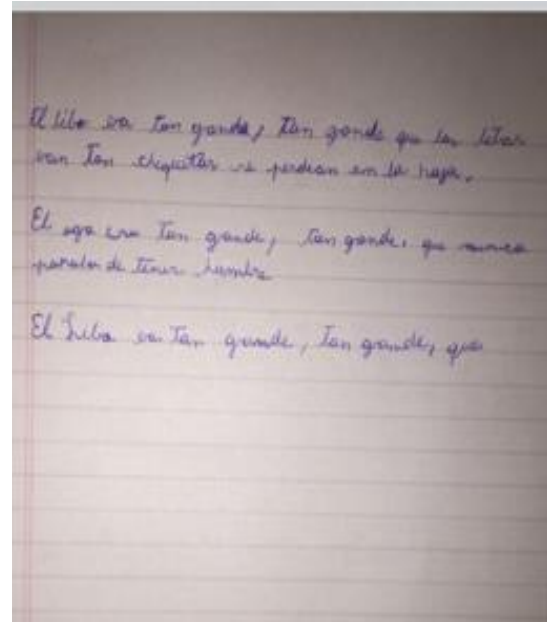 El libo era tan gande, tan gande que las letras
eran tan chiquitas se perdian en la hoja.
El ogo era tan gande, tan gande, que nunca
paraba de tener hambre
El era tan grande, tan grande, que